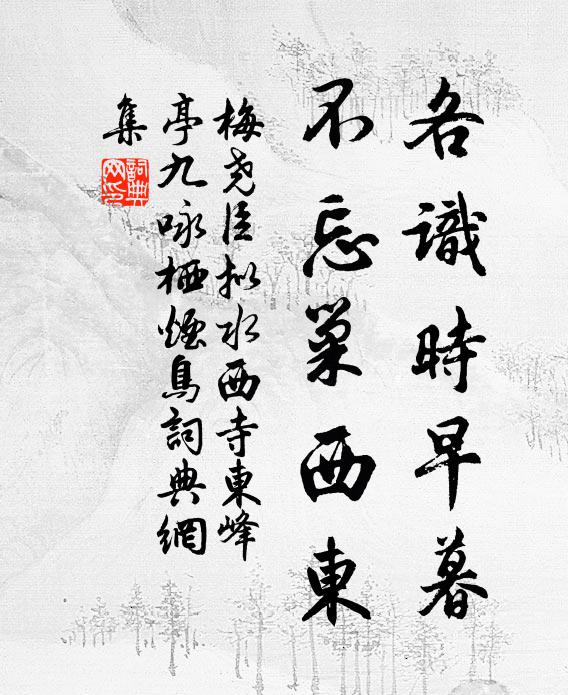 各識時早暮
不忘巢西東
梅堯臣拟水西寺東峰
亭九咏栖煙鳥詞典網
集
詞典
网印